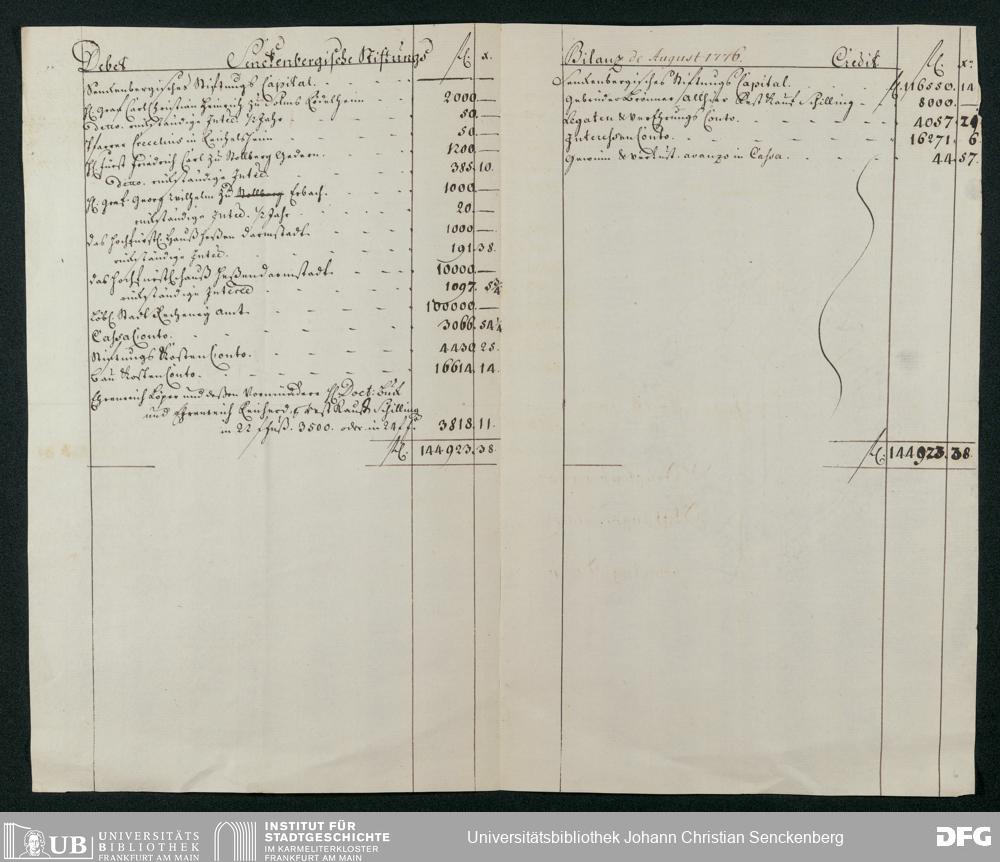 Debet Senckenbergische Stiftungs fl. x.
Senckenbergisches Stiftungs Capital.
H. Graf Carl Christian Heinrich zu Solms Rödelheim 2000 —
detto rückständige Intee. 1/2 Jahr 50. —
Pfarrer in Reichelsheim 50 —
H. Fürst Friedrich Carl zu Stollberg Gedern. 1200 —
detto. rückständige Intee. 385. 10.
H. Graf Georg Wilhelm zu Stollberg Erbach. 1000 —
rückständige Intee. 1/2 Jahr 20. —
das Hochfürstl. Hauß Heßen Darmstadt 1000 —
rückständige Intee. 191. 38.
das Hochfürstl. Hauß Heßendarmstadt 10000. —
rückständige Intee 1097.
Löbl. Stadt Rechney Amt. 100000 —
Cassa Conto. 3066. 54 1/4
Stiftungs Kosten Conto. 4430. 25.
Bau Kosten Conto. 16614. 14.
Ehrenreich Löper und deßen Vormündere H. Doct:
und Ehrenreich Rest Kauf Schilling
in 22 f fuß. 3500. oder in 24 f f. 3818. 11.
fl. 144923. 38
Bilanz de August 1776. Credit fl. xr
Senckenbergisches Stiftungs Capital. fl. 116550. 14
Gebrüder Brönner Rest Kauf Schilling 8000. —
Legaten & Verehrungs Conto. 4057. 21
Interessen Conto. 16271. 6
Gewinn & verlust. avanzo in Cassa. 44. 57.
fl. 144923. 38.
UB UNIVERSITÄTS
BIBLIOTHEK
FRANKFURT AM MAIN
INSTITUT FÜR
STADTGESCHICHTE
IM KARMELITERKLOSTER
FRANKFURT AM MAIN
Universitätsbibliothek Johann Christian Senckenberg
DFG